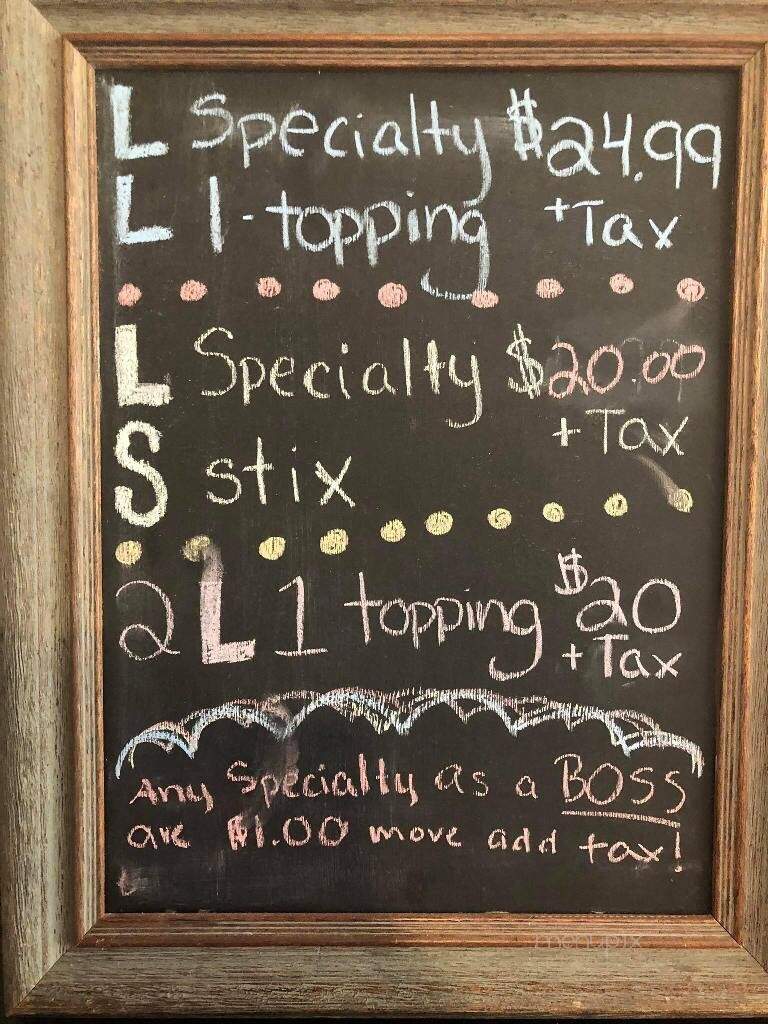 L Specialty $24.99
L 1-topping +Tax
L Specialty $20.00
+ Tax
S stix
2 L 1 topping $20
+ Tax
Any Specialty as a BOSS
are $1.00 more add tax!
menupix